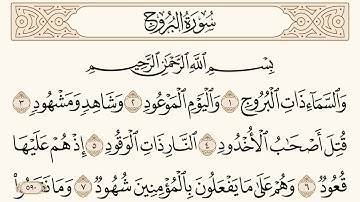 سُورَةُ البُرُوجِ
بِسْمِ ٱللَّهِ ٱلرَّحْمَٰنِ ٱلرَّحِيمِ
وَٱلسَّمَآءِ ذَاتِ ٱلْبُرُوجِ ١ وَٱلْيَوْمِ ٱلْمَوْعُودِ ٢ وَشَاهِدٍ وَمَشْهُودٍ ٣
قُتِلَ أَصْحَٰبُ ٱلْأُخْدُودِ ٤ ٱلنَّارِ ذَاتِ ٱلْوَقُودِ ٥ إِذْ هُمْ عَلَيْهَا
قُعُودٌ ٦ وَهُمْ عَلَىٰ مَا يَفْعَلُونَ بِٱلْمُؤْمِنِينَ شُهُودٌ ٧ وَمَا نَقَمُوا۟
٥٩٠